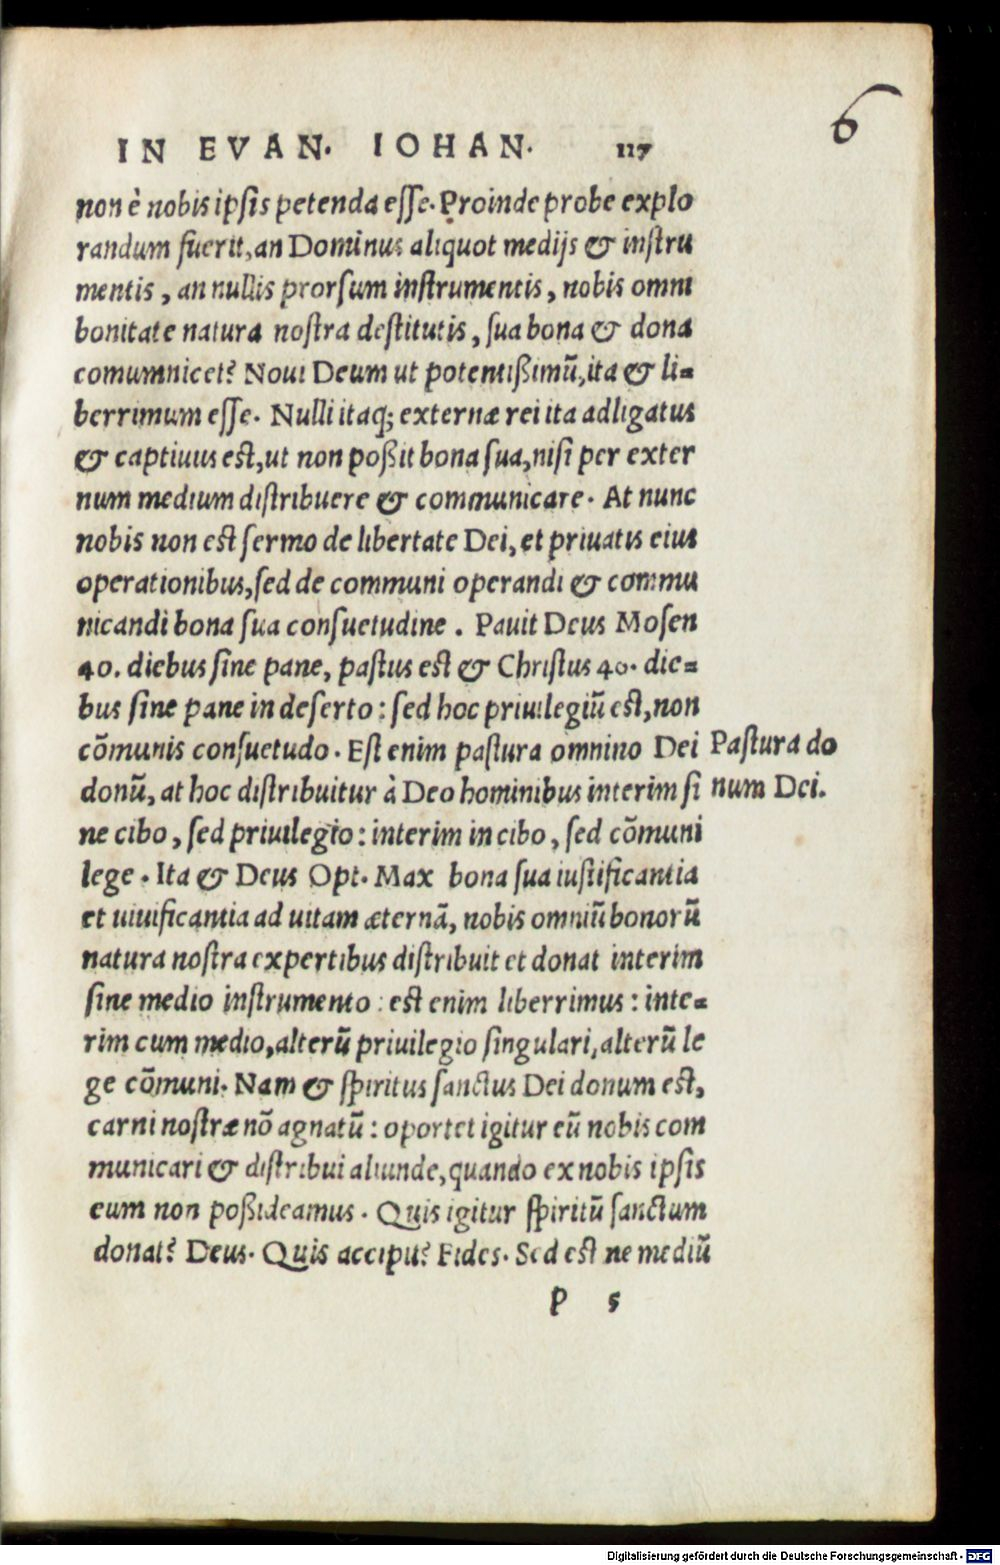 6
IN EVAN. IOHAN. 117
non è nobis ipsis petenda esse. Proinde probe explo
randum fuerit, an Dominus aliquot medijs & instru
mentis, an nullis prorsum instrumentis, nobis omni
bonitate natura nostra destitutis, sua bona & dona
comumnicet? Noui Deum ut potentißimū, ita & li=
berrimum esse. Nulli itaq; externæ rei ita adligatus
& captiuus est, ut non poßit bona sua, nisi per exter
num medium distribuere & communicare. At nunc
nobis non est sermo de libertate Dei, et priuatis eius
operationibus, sed de communi operandi & commu
nicandi bona sua consuetudine. Pauit Deus Mosen
40. diebus sine pane, pastus est & Christus 40. die=
bus sine pane in deserto: sed hoc priuilegiū est, non
cōmunis consuetudo. Est enim pastura omnino Dei
donū, at hoc distribuitur à Deo hominibus interim si
ne cibo, sed priuilegio: interim in cibo, sed cōmuni
lege. Ita & Deus Opt. Max bona sua iustificantia
et uiuificantia ad uitam æternā, nobis omniū bonorū
natura nostra expertibus distribuit et donat interim
sine medio instrumento: est enim liberrimus: inte=
rim cum medio, alterū priuilegio singulari, alterū le
ge cōmuni. Nam & spiritus sanctus Dei donum est,
carni nostræ nō agnatū: oportet igitur eū nobis com
municari & distribui aliunde, quando ex nobis ipsis
eum non poßideamus. Quis igitur spiritū sanctum
donat? Deus. Quis accipit? Fides. Sed est ne mediū
P 5
Pastura do
num Dei.
Digitalisierung gefördert durch die Deutsche Forschungsgemeinschaft - DFG